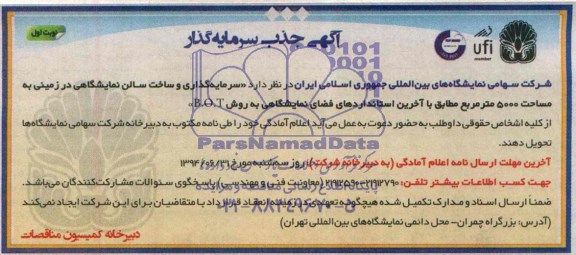 نوبت اول
آگهی جذب سرمایه‌گذار
ufi
شرکت سهامی نمایشگاه‌های بین‌المللی جمهوری اسلامی ایران در نظر دارد «سرمایه‌گذاری و ساخت سالن نمایشگاهی در زمینی به
مساحت ۵۰۰۰ مترمربع مطابق با آخرین استانداردهای فضای نمایشگاهی به روش B.O.T»
از کلیه اشخاص حقوقی داوطلب به حضور دعوت به عمل می‌آید اعلام آمادگی خود را طی نامه مکتوب به دبیرخانه شرکت سهامی نمایشگاه‌ها
تحویل دهند.
آخرین مهلت ارسال نامه اعلام آمادگی (به دبیرخانه شرکت): روز سه‌شنبه مورخ
جهت کسب اطلاعات بیشتر تلفن: (معاونت فنی و مهندسی) پاسخگوی سئوالات مشارکت‌کنندگان می‌باشد.
ضمناً ارسال اسناد و مدارک تکمیل شده هیچگونه تعهدی در زمینه انعقاد قرارداد با متقاضیان برای این شرکت ایجاد نمی‌کند
(آدرس: بزرگراه چمران- محل دائمی نمایشگاه‌های بین‌المللی تهران)
دبیرخانه کمیسیون مناقصات
ParsNamadData
۰۲۱-۸۸۳۴۹۶۷۰